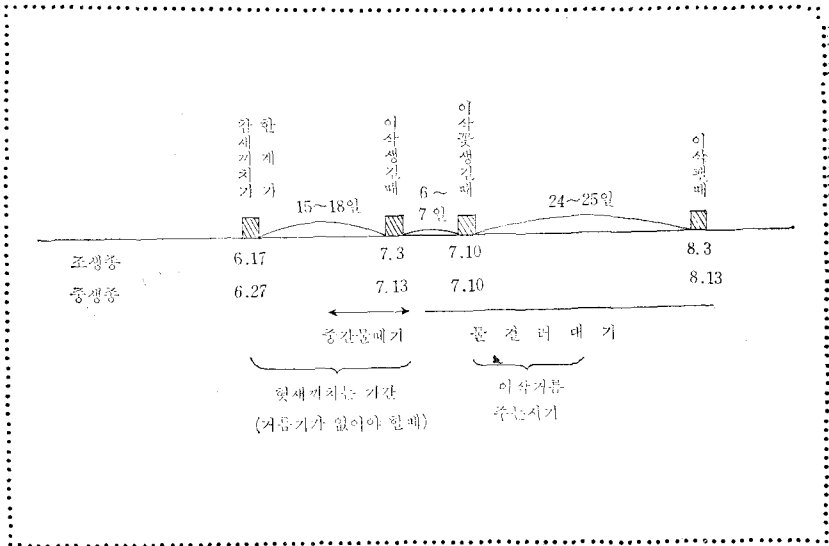 참새끼치기
한계가
이삭생긴때
이삭꽃생긴때
이삭팬때
15~18일
6~
7일
24~25일
조생종 6.17 7.3 7.10 8.3
중생종 6.27 7.13 7.10 8.13
중간물떼기 물걸러대기
헛새끼치는 기간 이삭거름
(거름기가 없어야 할때) 주는시기